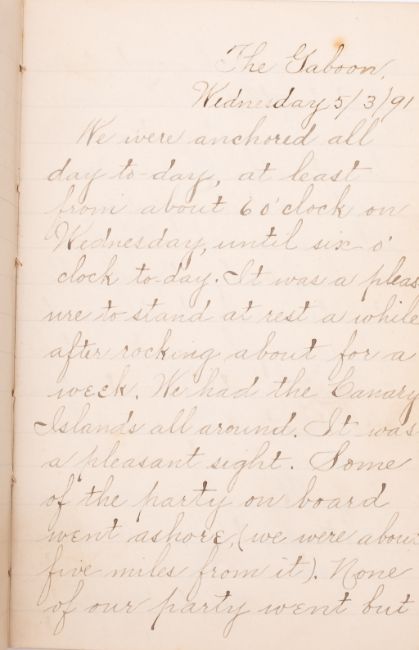 The Gaboon,
Wednesday 5/3/91
We were anchored all
day to-day, at least
from about 6 o'clock on
Wednesday, until six o'
clock to-day. It was a pleas
ure to stand at rest a while
after rocking about for a
week. We had the Canary
Islands all around. It was
a pleasant sight. Some
of the party on board
went ashore, (we were about
five miles from it). None
of our party went but